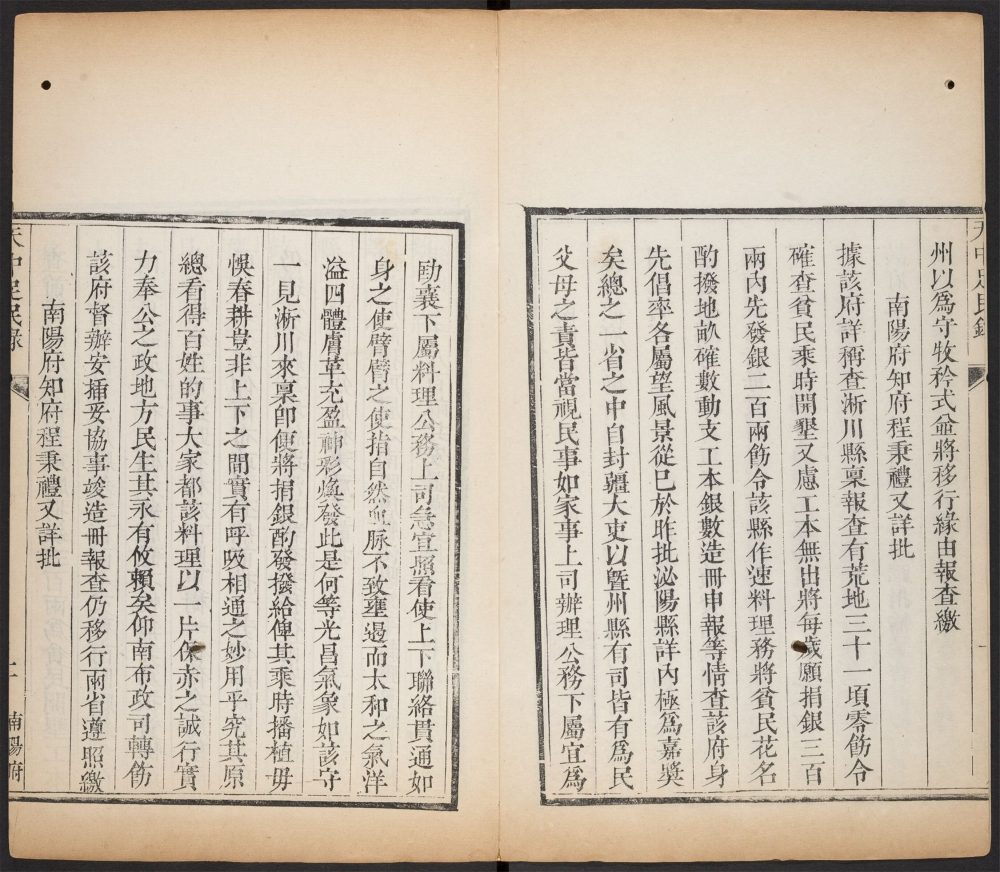 州以為守牧矜式並將移行緣由報查繳
南陽府知府程秉禮又詳批
據該府詳稱查淅川縣稟報查有荒地三十一項零飭令
確查貧民乘時開墾又慮工本無出將每歲願捐銀三百
兩內先發銀二百兩飭令該縣作速料理務將貧民花名
酌撥地畝確數動支工本銀數造冊申報等情查該府身
先倡率各屬望風景從已於昨批泌陽縣詳內極為嘉獎
矣總之一省之中自封疆大吏以曁州縣有司皆有為民
父母之責皆當視民事如家事上司辦理公務下屬宜為
勷襄下屬料理公務上司急宜照看使上下聯絡貫通如
身之使臂臂之使指自然血脉不致壅遏而太和之氣洋
溢四體膚革充盈神彩煥發此是何等光昌氣象如該守
一見淅川來稟卽便將捐銀酌發撥給俾其乘時播植毋
悞春耕豈非上下之間實有呼吸相通之妙用乎究其原
總看得百姓的事大家都該料理以一片保赤之誠行實
力奉公之政地方民生其永有攸賴矣仰南布政司轉飭
該府督辦安揷妥協事竣造冊報查仍移行兩省遵照繳
南陽府知府程秉禮又詳批
天中足民錄
南陽府